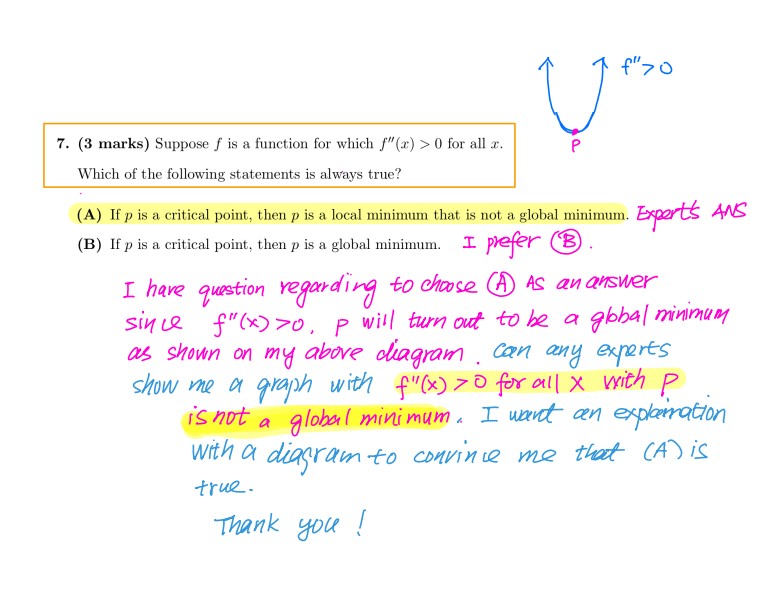 f">0
P
7. (3 marks) Suppose f is a function for which f″(x) > 0 for all x.
Which of the following statements is always true?
(A) If p is a critical point, then p is a local minimum that is not a global minimum. Expert's ANS
(B) If p is a critical point, then p is a global minimum. I prefer (B).
I have question regarding to choose (A) As an answer
since f"(x)>0, P will turn out to be a global minimum
as shown on my above diagram. Can any experts
show me a graph with f"(x)>0 for all x with P
is not a global minimum. I want an explaination
with a diagram to convince me that (A) is
true.
Thank you!